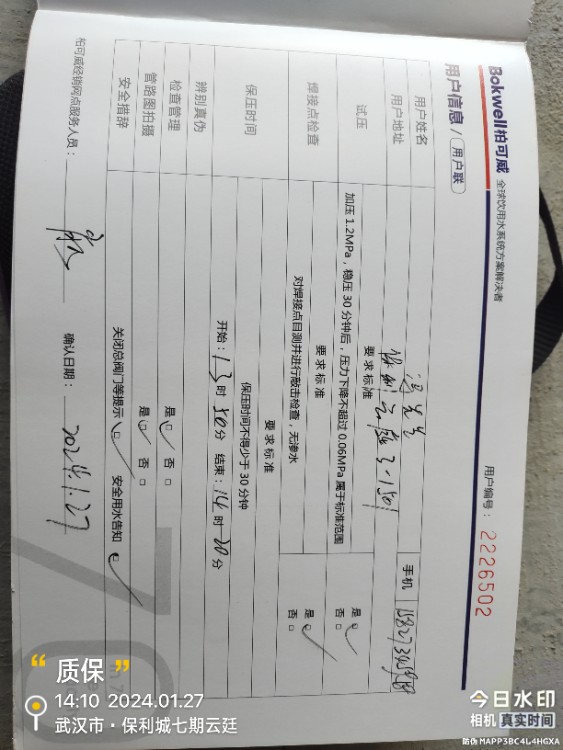 Bokwell柏可威 全球饮用水系统方案解决者
用户编号：2226502
用户信息 / 用户联
用户姓名 冯先生 手机
用户地址 保利云廷3-1501
试压 要求标准
加压1.2MPa，稳压30分钟后，压力下降不超过0.06MPa属于标准范围 是 否
焊接点检查 要求标准
对焊接点目测并进行敲击检查，无渗水 是 否
保压时间 要求标准
保压时间不得少于30分钟
开始：13时50分 结束：14时20分
辨别真伪
检查管理 是 否
管路图拍摄 是 否
安全措辞 关闭总阀门等提示 安全用水告知
柏可威经销网点服务人员： 确认日期：2024.1.27
“ 质保 ”
14:10 2024.01.27
武汉市·保利城七期云廷
今日水印
相机 真实时间
防伪 MAPP3BC4L4HGXA